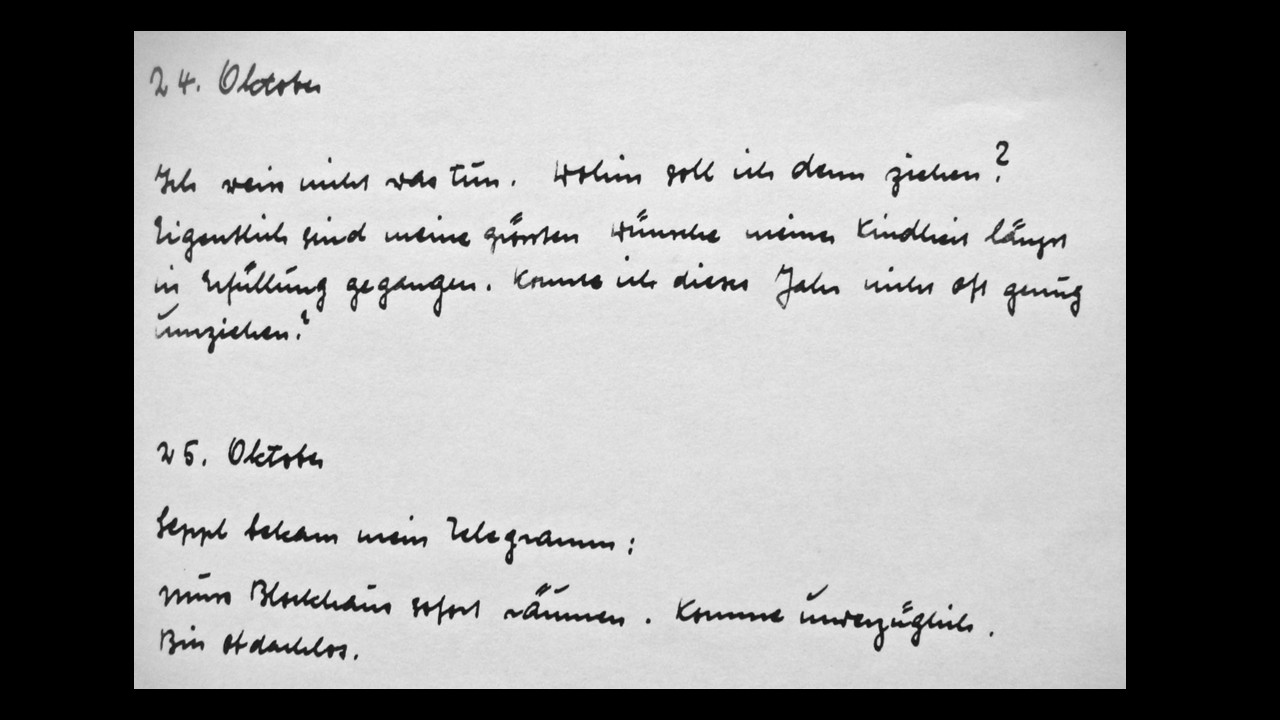 24. Oktober
Ich weiss nicht was tun. Wohin soll ich denn ziehen?
Eigentlich sind meine grössten Wünsche meiner Kindheit längst
in Erfüllung gegangen. Konnte ich dieses Jahr nicht oft genug
umziehen?
25. Oktober
Seppl bekam mein Telegramm:
muss Blockhaus sofort räumen. Komme unverzüglich.
Bin obdachlos.